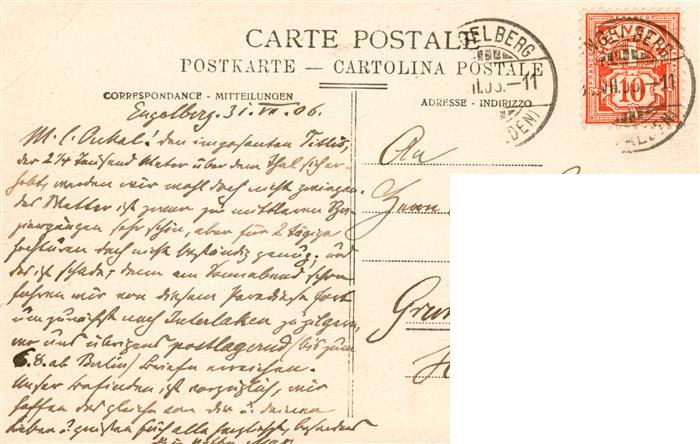 CARTE POSTALE
POSTKARTE — CARTOLINA POSTALE
CORRESPONDANCE - MITTEILUNGEN
ADRESSE - INDIRIZZO
ELBERG
10
Engelberg. 31. VII. 06.
M. l. Onkel! den imposanten Titlis,
der 2¼ Tausend Meter über dem Thal sich er-
hebt, werden wir wohl doch nicht zwingen.
das Wetter ist zwar zu mittleren
Spaziergängen sehr schön, aber für 2 tägige
Hochturen doch nicht beständig genug; und
das ist schade, denn am Sonnabend schon
fahren wir von diesem Paradiese fort
um zunächst nach Interlaken zu pilgern,
wo uns übrigens postlagernd (bis zum
6.8. ab Berlin) Briefe erreichen.
Unser Befinden ist vorzüglich, wir
hoffen das gleiche von dir u. deinen
lieben u. grüßen Euch alle herzlichst, besonders
An
Herrn